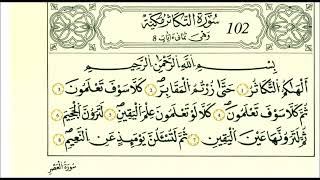 سُورَةُ التَّكَاثُرِ مَكِّيَّةٌ
102
وَهِيَ ثَمَانِي اٰيَاتٍ 8
بِسْمِ اللّٰهِ الرَّحْمٰنِ الرَّحِيْمِ
اَلْهٰىكُمُ التَّكَاثُرُۙ ١ حَتّٰى زُرْتُمُ الْمَقَابِرَۗ ٢ كَلَّا سَوْفَ تَعْلَمُوْنَۙ ٣
ثُمَّ كَلَّا سَوْفَ تَعْلَمُوْنَ ٤ كَلَّا لَوْ تَعْلَمُوْنَ عِلْمَ الْيَقِيْنِۗ ٥ لَتَرَوُنَّ الْجَحِيْمَۙ ٦
ثُمَّ لَتَرَوُنَّهَا عَيْنَ الْيَقِيْنِۙ ٧ ثُمَّ لَتُسْـَٔلُنَّ يَوْمَىِٕذٍ عَنِ النَّعِيْمِ ٨
سُورَةُ الْعَصْرِ